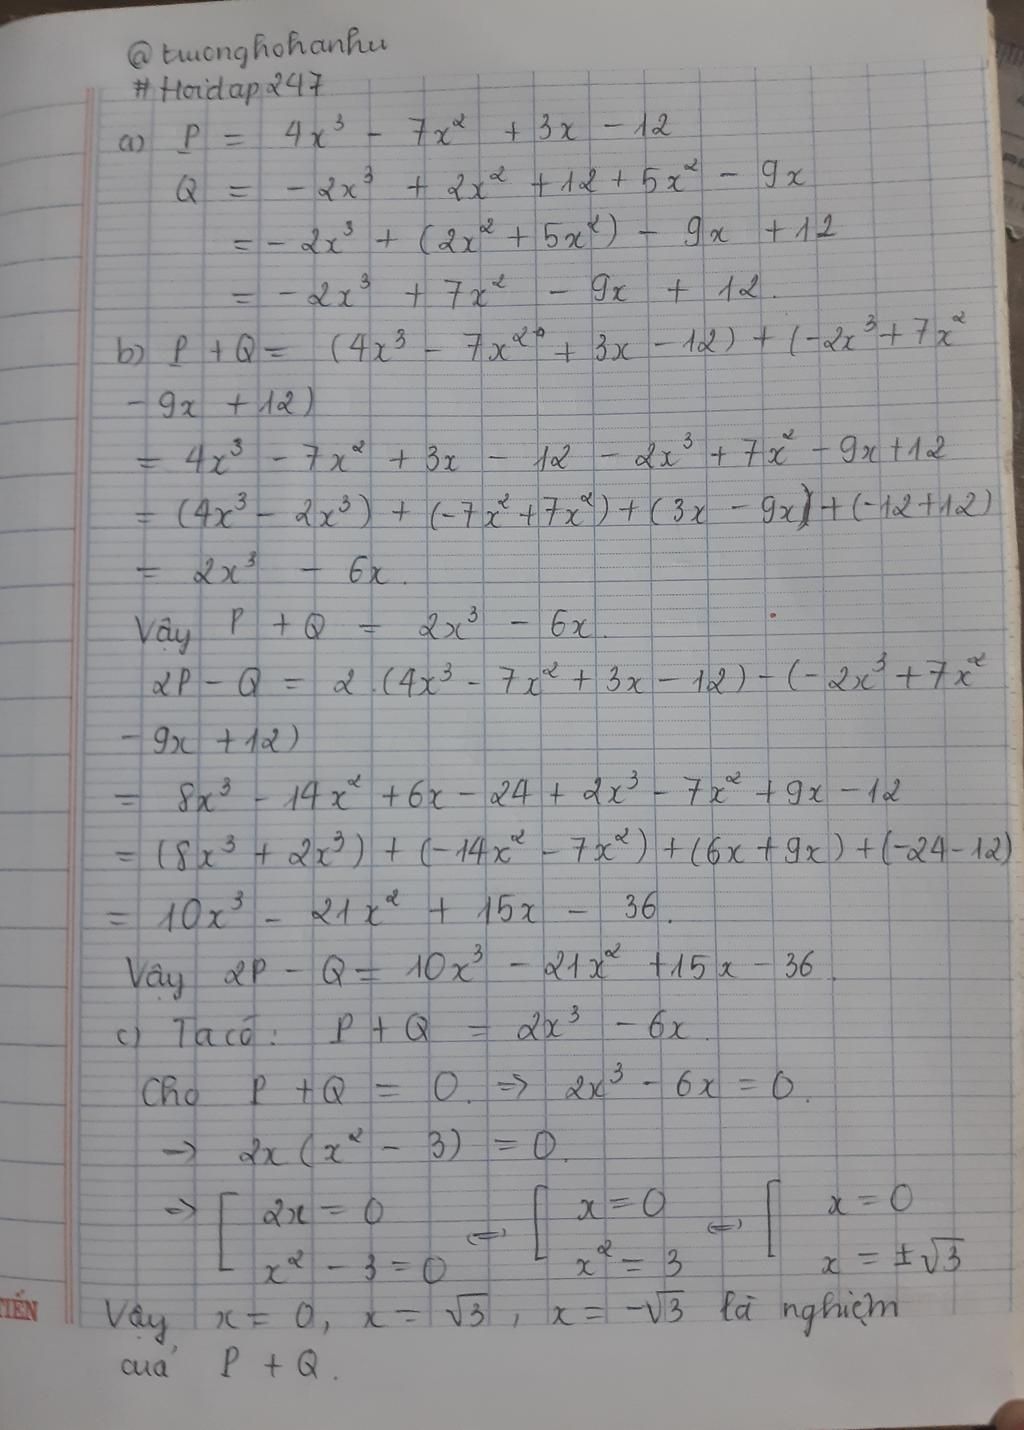 @truonghohanhu
#Hoidap247
a) P = 4x³ - 7x² + 3x - 12
Q = - 2x³ + 2x² + 12 + 5x² - 9x
= - 2x³ + (2x² + 5x²) - 9x + 12
= - 2x³ + 7x² - 9x + 12.
b) P + Q = (4x³ - 7x² + 3x - 12) + (-2x³ + 7x²
- 9x + 12)
= 4x³ - 7x² + 3x - 12 - 2x³ + 7x² - 9x + 12
= (4x³ - 2x³) + (-7x² + 7x²) + (3x - 9x) + (-12 + 12)
= 2x³ - 6x.
Vậy P + Q = 2x³ - 6x.
2P - Q = 2.(4x³ - 7x² + 3x - 12) - (-2x³ + 7x²
- 9x + 12)
= 8x³ - 14x² + 6x - 24 + 2x³ - 7x² + 9x - 12
= (8x³ + 2x³) + (-14x² - 7x²) + (6x + 9x) + (-24 - 12)
= 10x³ - 21x² + 15x - 36.
Vậy 2P - Q = 10x³ - 21x² + 15x - 36.
c) Ta có: P + Q = 2x³ - 6x.
Cho P + Q = 0. => 2x³ - 6x = 0.
→ 2x(x² - 3) = 0.
=> [ 2x = 0 <=> [ x = 0 <=> [ x = 0
x² - 3 = 0 x² = 3 x = ±√3
TIẾN
Vậy x = 0, x = √3, x = -√3 là nghiệm
của P + Q.